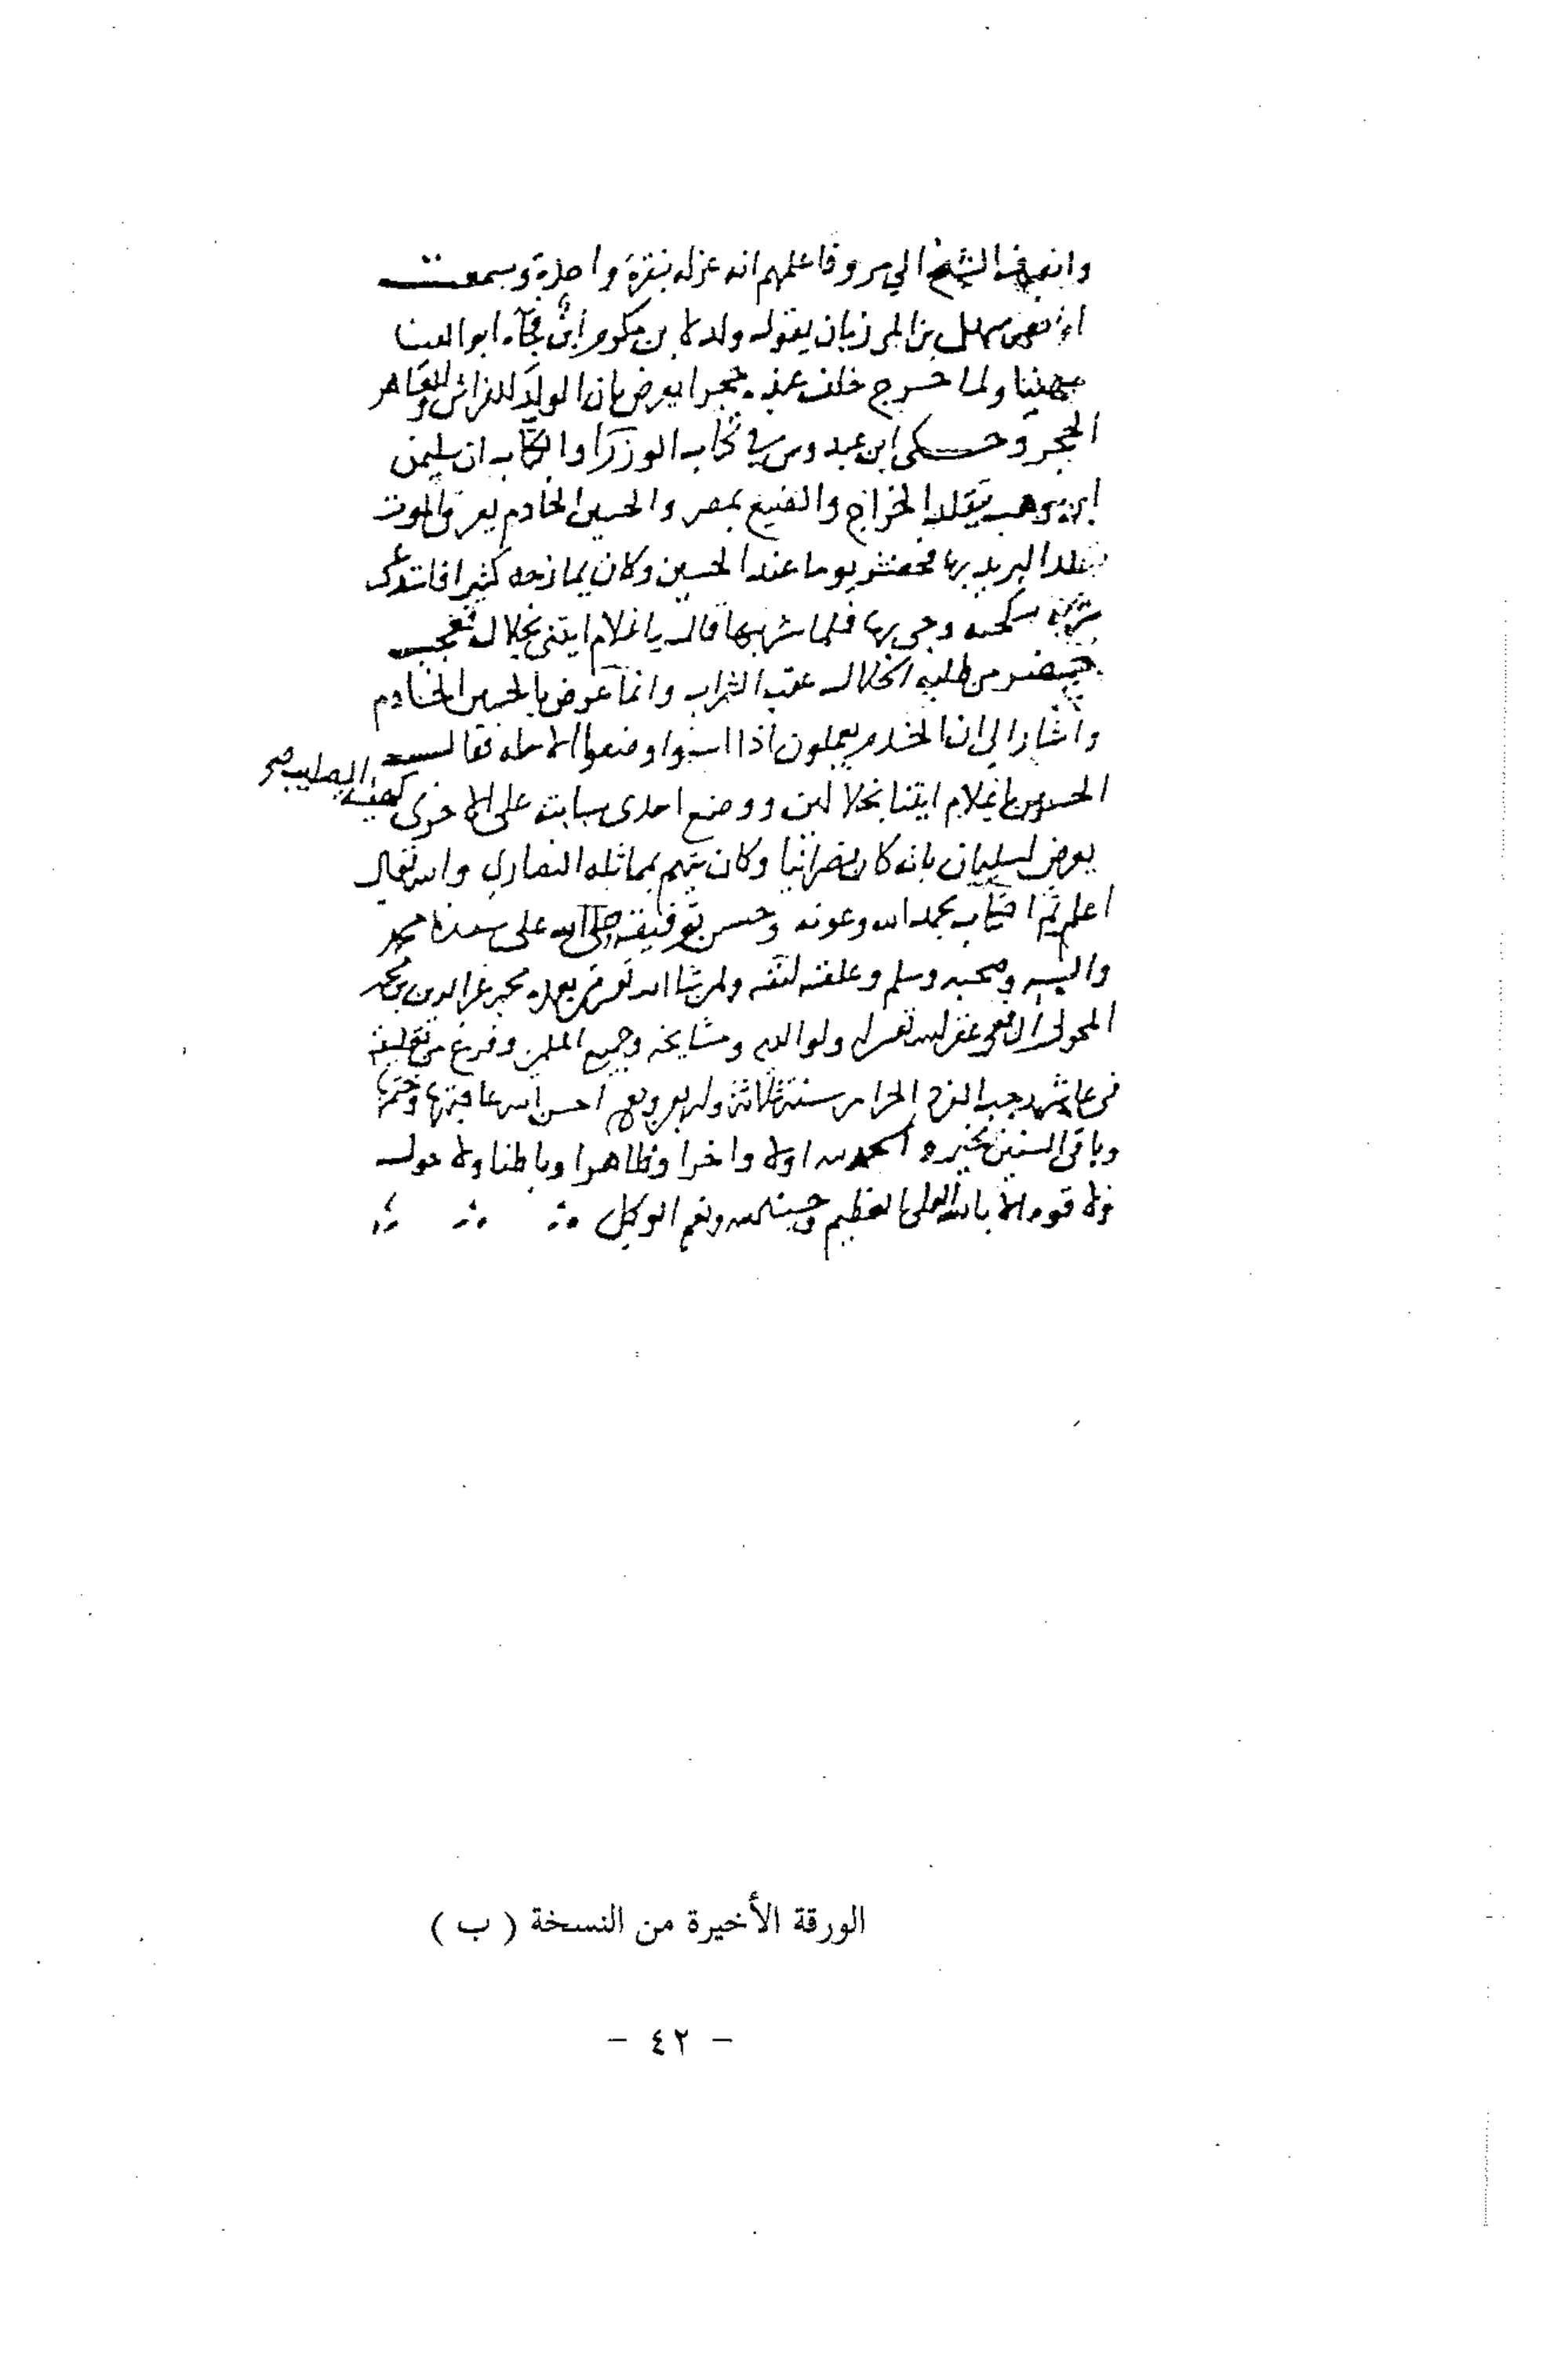 وانصرف الشيخ الي مرو فاعلمهم انه عزله بنقرة واحدة وسمعت
ابا نصر سهل بن المرزبان يقول ولد لابن مكرم ابن فجآء ابو العينا
مهنيا ولما خرج خلف عنده حجرا يعرض بان الولد للفراش وللعاهر
الحجر وحكى ابن عبدوس في كتاب الوزرا والكتاب ان سليمن
ابن وهب تقلد الخراج والضيع بمصر والحسين الخادم يعرق الموت
تقلد البريد بها فحضر يوما عند الحسين وكان يمازحه كثيرا فاستدعى
شربة وجي بها فلما شربها قال يا غلام ايتنى بخلال فعجب
من حضر من طلبه الخلال عقب الشراب وانما عرض بالحسين الخادم
واشار الي ان الخدم يعملون اذا فقال
الحسين يا غلام ايتنا بخلالين ووضع احدى سبابتيه على الاخرى كهيئة الصليب صح
يعرض لسليمان بانه كان نصرانيا وكان يتهم بماثلة النصاري والله تعالى
اعلم تم الكتاب بحمد الله وعونه وحسن توفيقه صلى الله على سيدنا محمد
واله وصحبه وسلم وعلقه لنفسه ولمن شا الله تعالى من بعده محمد عز الدين بن محمد
الشافعي غفر الله تعالى له ولوالديه ومشايخه وجميع المسلمين وفرغ من تعليقه
في عاشر رجب الفرد الحرام سنة ثلاثة احسن الله عاقبتها وختمها
وباقي السنين بخير والحمد لله اولا واخرا وظاهرا وباطنا ولا حول
ولا قوه الا بالله العلي العظيم وحسبنا الله ونعم الوكيل
الورقة الأخيرة من النسخة ( ب )
– ٤٢ –